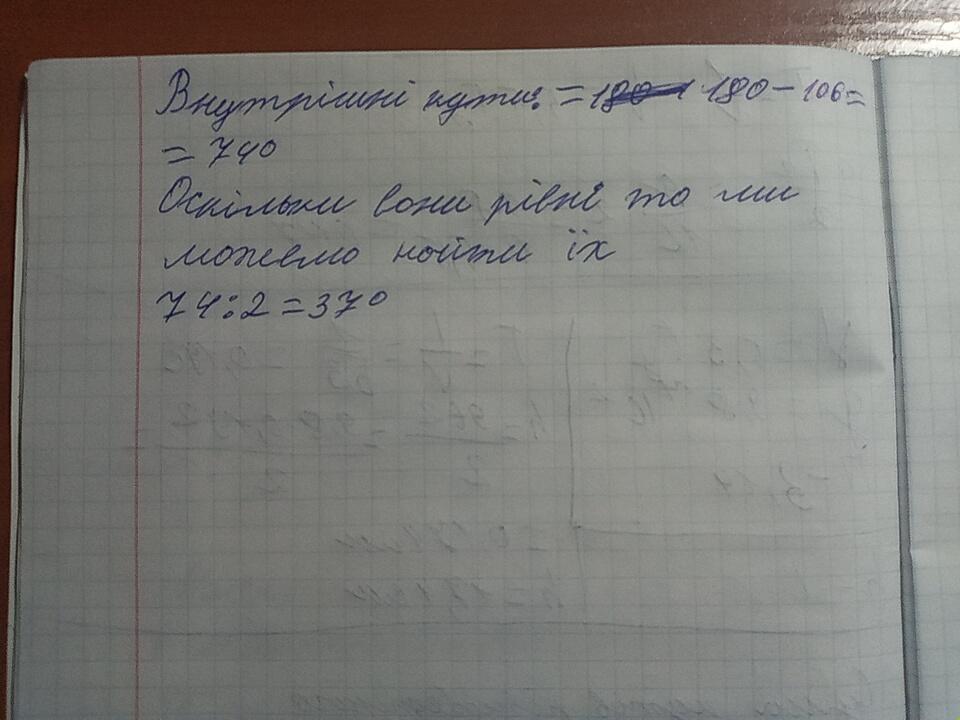 Внутрішні кути: = 180 - 106 =
= 74°
Оскільки вони рівні то ми
можемо найти їх
74:2=37°